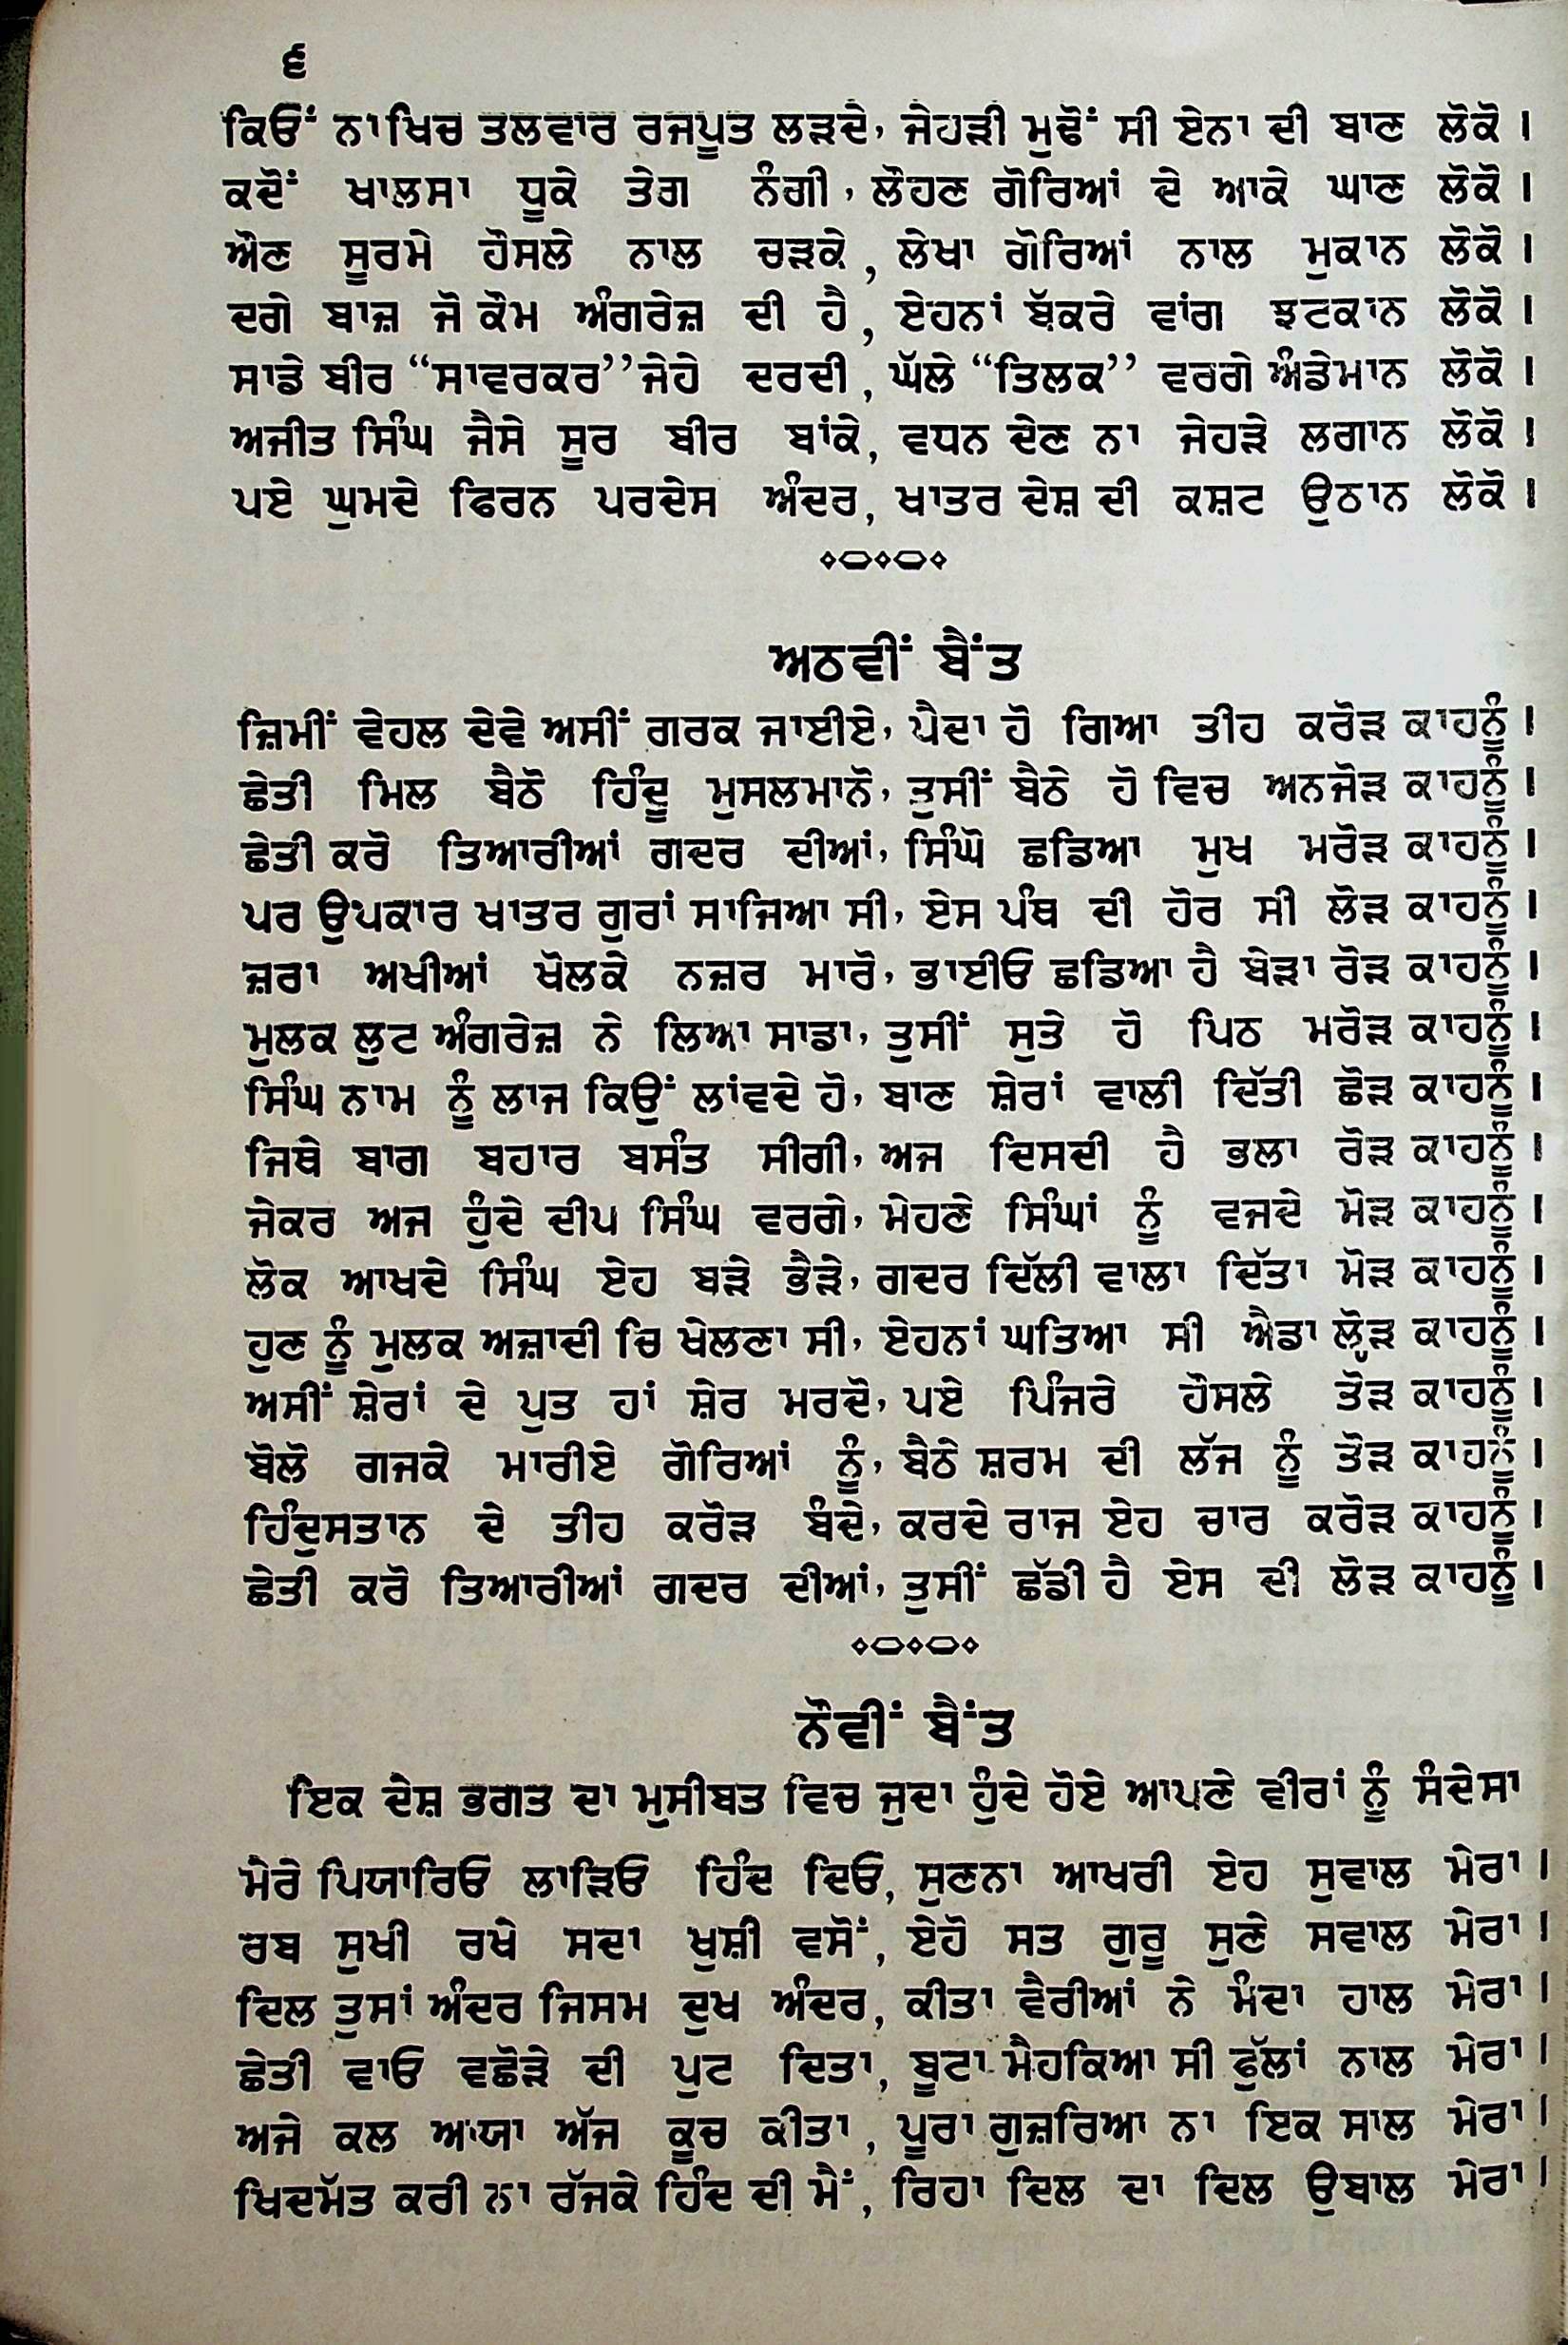 ੬
ਕਿਓਂ ਨਾ ਖਿਚ ਤਲਵਾਰ ਰਜਪੂਤ ਲੜਦੇ, ਜੇਹੜੀ ਮੁਢੋਂ ਸੀ ਏਨਾ ਦੀ ਬਾਣ ਲੋਕੋ ।
ਕਦੋਂ ਖਾਲਸਾ ਧੂਕੇ ਤੇਗ ਨੰਗੀ, ਲੌਹਣ ਗੋਰਿਆਂ ਦੇ ਆਕੇ ਘਾਣ ਲੋਕੋ ।
ਔਣ ਸੂਰਮੇ ਹੌਸਲੇ ਨਾਲ ਚੜਕੇ, ਲੇਖਾ ਗੋਰਿਆਂ ਨਾਲ ਮੁਕਾਨ ਲੋਕੋ ।
ਦਗੇ ਬਾਜ਼ ਜੋ ਕੌਮ ਅੰਗਰੇਜ਼ ਦੀ ਹੈ, ਏਹਨਾਂ ਬੱਕਰੇ ਵਾਂਗ ਝਟਕਾਨ ਲੋਕੋ ।
ਸਾਡੇ ਬੀਰ “ਸਾਵਰਕਰ” ਜੇਹੇ ਦਰਦੀ, ਘੱਲੇ “ਤਿਲਕ” ਵਰਗੇ ਅੰਡੇਮਾਨ ਲੋਕੋ ।
ਅਜੀਤ ਸਿੰਘ ਜੈਸੇ ਸੂਰ ਬੀਰ ਬਾਂਕੇ, ਵਧਨ ਦੇਣ ਨਾ ਜੇਹੜੇ ਲਗਾਨ ਲੋਕੋ ।
ਪਏ ਘੁਮਦੇ ਫਿਰਨ ਪਰਦੇਸ ਅੰਦਰ, ਖਾਤਰ ਦੇਸ਼ ਦੀ ਕਸ਼ਟ ਉਠਾਨ ਲੋਕੋ ।
ਅਠਵੀਂ ਬੈਂਤ
ਜ਼ਿਮੀਂ ਵੇਹਲ ਦੇਵੇ ਅਸੀਂ ਗਰਕ ਜਾਈਏ, ਪੈਦਾ ਹੋ ਗਿਆ ਤੀਹ ਕਰੋੜ ਕਾਹਨੂੰ ।
ਛੇਤੀ ਮਿਲ ਬੈਠੋ ਹਿੰਦੂ ਮੁਸਲਮਾਨੋ, ਤੁਸੀਂ ਬੈਠੇ ਹੋ ਵਿਚ ਅਨਜੋੜ ਕਾਹਨੂੰ ।
ਛੇਤੀ ਕਰੋ ਤਿਆਰੀਆਂ ਗਦਰ ਦੀਆਂ, ਸਿੰਘੋ ਛਡਿਆ ਮੁਖ ਮਰੋੜ ਕਾਹਨੂੰ ।
ਪਰ ਉਪਕਾਰ ਖਾਤਰ ਗੁਰਾਂ ਸਾਜਿਆ ਸੀ, ਏਸ ਪੰਥ ਦੀ ਹੋਰ ਸੀ ਲੋੜ ਕਾਹਨੂੰ ।
ਜ਼ਰਾ ਅਖੀਆਂ ਖੋਲਕੇ ਨਜ਼ਰ ਮਾਰੋ, ਭਾਈਓ ਛਡਿਆ ਹੈ ਬੇੜਾ ਰੋੜ ਕਾਹਨੂੰ ।
ਮੁਲਕ ਲੁਟ ਅੰਗਰੇਜ਼ ਨੇ ਲਿਆ ਸਾਡਾ, ਤੁਸੀਂ ਸੁਤੇ ਹੋ ਪਿਠ ਮਰੋੜ ਕਾਹਨੂੰ ।
ਸਿੰਘ ਨਾਮ ਨੂੰ ਲਾਜ ਕਿਉਂ ਲਾਂਵਦੇ ਹੋ, ਬਾਣ ਸ਼ੇਰਾਂ ਵਾਲੀ ਦਿੱਤੀ ਛੋੜ ਕਾਹਨੂੰ ।
ਜਿਥੇ ਬਾਗ ਬਹਾਰ ਬਸੰਤ ਸੀਗੀ, ਅਜ ਦਿਸਦੀ ਹੈ ਭਲਾ ਰੋੜ ਕਾਹਨੂੰ ।
ਜੇਕਰ ਅਜ ਹੁੰਦੇ ਦੀਪ ਸਿੰਘ ਵਰਗੇ, ਮੇਹਣੇ ਸਿੰਘਾਂ ਨੂੰ ਵਜਦੇ ਮੋੜ ਕਾਹਨੂੰ ।
ਲੋਕ ਆਖਦੇ ਸਿੰਘ ਏਹ ਬੜੇ ਭੈੜੇ, ਗਦਰ ਦਿੱਲੀ ਵਾਲਾ ਦਿੱਤਾ ਮੋੜ ਕਾਹਨੂੰ ।
ਹੁਣ ਨੂੰ ਮੁਲਕ ਅਜ਼ਾਦੀ ਚਿ ਖੇਲਣਾ ਸੀ, ਏਹਨਾਂ ਘਤਿਆ ਸੀ ਐਡਾ ਲ੍ਹੋੜ ਕਾਹਨੂੰ ।
ਅਸੀਂ ਸ਼ੇਰਾਂ ਦੇ ਪੁਤ ਹਾਂ ਸ਼ੇਰ ਮਰਦੋ, ਪਏ ਪਿੰਜਰੇ ਹੌਸਲੇ ਤੋੜ ਕਾਹਨੂੰ ।
ਬੋਲੋ ਗਜਕੇ ਮਾਰੀਏ ਗੋਰਿਆਂ ਨੂੰ, ਬੈਠੇ ਸ਼ਰਮ ਦੀ ਲੱਜ ਨੂੰ ਤੋੜ ਕਾਹਨੂੰ ।
ਹਿੰਦੁਸਤਾਨ ਦੇ ਤੀਹ ਕਰੋੜ ਬੰਦੇ, ਕਰਦੇ ਰਾਜ ਏਹ ਚਾਰ ਕਰੋੜ ਕਾਹਨੂੰ ।
ਛੇਤੀ ਕਰੋ ਤਿਆਰੀਆਂ ਗਦਰ ਦੀਆਂ, ਤੁਸੀਂ ਛੱਡੀ ਹੈ ਏਸ ਦੀ ਲੋੜ ਕਾਹਨੂੰ ।
ਨੌਵੀਂ ਬੈਂਤ
ਇਕ ਦੇਸ਼ ਭਗਤ ਦਾ ਮੁਸੀਬਤ ਵਿਚ ਜੁਦਾ ਹੁੰਦੇ ਹੋਏ ਆਪਣੇ ਵੀਰਾਂ ਨੂੰ ਸੰਦੇਸਾ
ਮੇਰੇ ਪਿਯਾਰਿਓ ਲਾੜਿਓ ਹਿੰਦ ਦਿਓ, ਸੁਣਨਾ ਆਖਰੀ ਏਹ ਸੁਵਾਲ ਮੇਰਾ ।
ਰਬ ਸੁਖੀ ਰਖੇ ਸਦਾ ਖੁਸ਼ੀ ਵਸੋਂ, ਏਹੋ ਸਤ ਗੁਰੂ ਸੁਣੇ ਸਵਾਲ ਮੇਰਾ ।
ਦਿਲ ਤੁਸਾਂ ਅੰਦਰ ਜਿਸਮ ਦੁਖ ਅੰਦਰ, ਕੀਤਾ ਵੈਰੀਆਂ ਨੇ ਮੰਦਾ ਹਾਲ ਮੇਰਾ ।
ਛੇਤੀ ਵਾਓ ਵਛੋੜੇ ਦੀ ਪੁਟ ਦਿਤਾ, ਬੂਟਾ ਮੈਹਕਿਆ ਸੀ ਫੁੱਲਾਂ ਨਾਲ ਮੇਰਾ ।
ਅਜੇ ਕਲ ਆਯਾ ਅੱਜ ਕੂਚ ਕੀਤਾ, ਪੂਰਾ ਗੁਜ਼ਰਿਆ ਨਾ ਇਕ ਸਾਲ ਮੇਰਾ ।
ਖਿਦਮੱਤ ਕਰੀ ਨਾ ਰੱਜਕੇ ਹਿੰਦ ਦੀ ਮੈਂ, ਰਿਹਾ ਦਿਲ ਦਾ ਦਿਲ ਉਬਾਲ ਮੇਰਾ ।